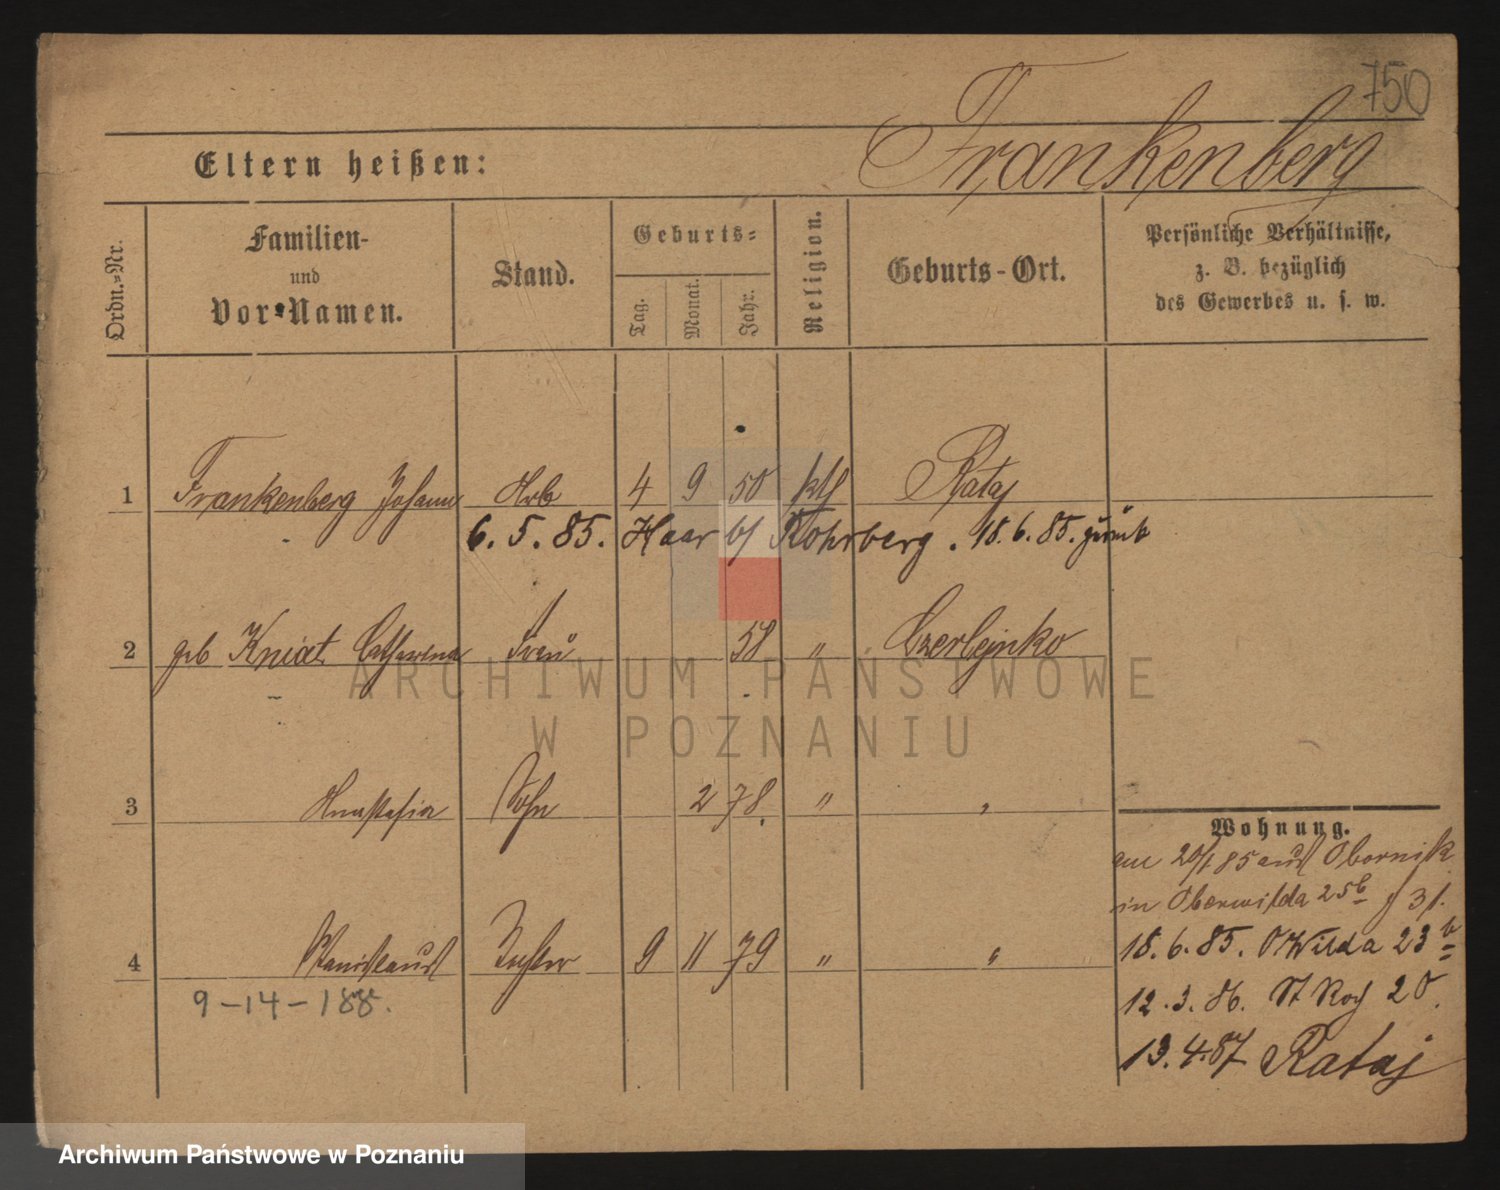 750
Frankenberg
Eltern heißen:
Ordn.-Nr.
Familien-
und
Vor-Namen.
Stand.
Geburts-
Tag.
Monat.
Jahr.
Religion.
Geburts-Ort.
Persönliche Verhältnisse,
z. B. bezüglich
des Gewerbes u. s. w.
1 Frankenberg Johann Arb 4 9 50 kth Rataj
6. 5. 85. Haar b/ Rohrberg. 18. 6. 85. zurück
2 geb Kniat Catharina Frau 58 " Czerlejnko
3 Anastasia Sohn 2 78. " "
4 Stanislaus Tochter 9 11 79 " "
9-14-188.
Wohnung.
am 20/1 85 aus Obornik
in Oberwilda 25b
18. 6. 85. O/Wilda 23b
12. 3. 86. St Roch 20.
13. 4. 87 Rataj
ARCHIWUM PAŃSTWOWE
W POZNANIU
Archiwum Państwowe w Poznaniu